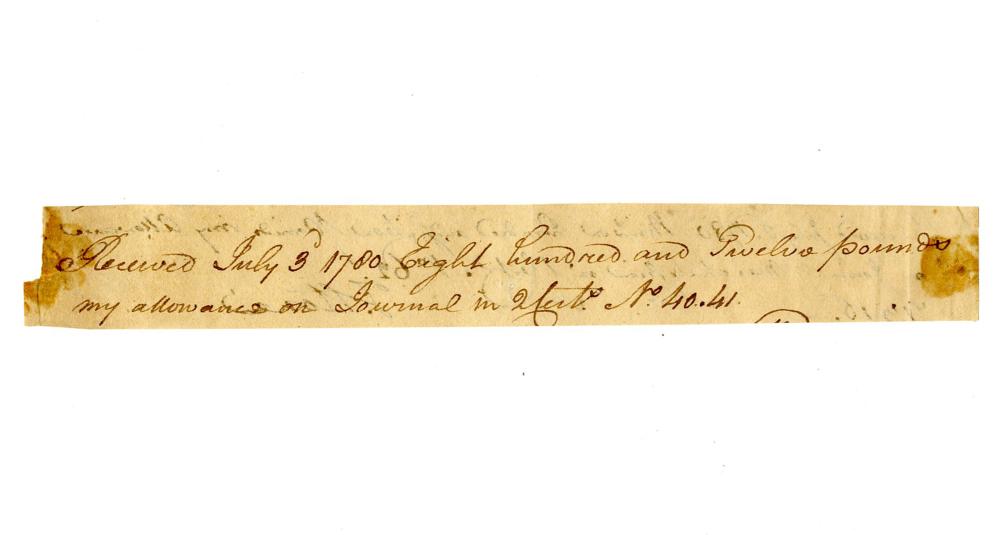 Received July 3d 1780 Eight hundred and Twelve pounds
my allowance on Journal in 2 Certs. No. 40.41.